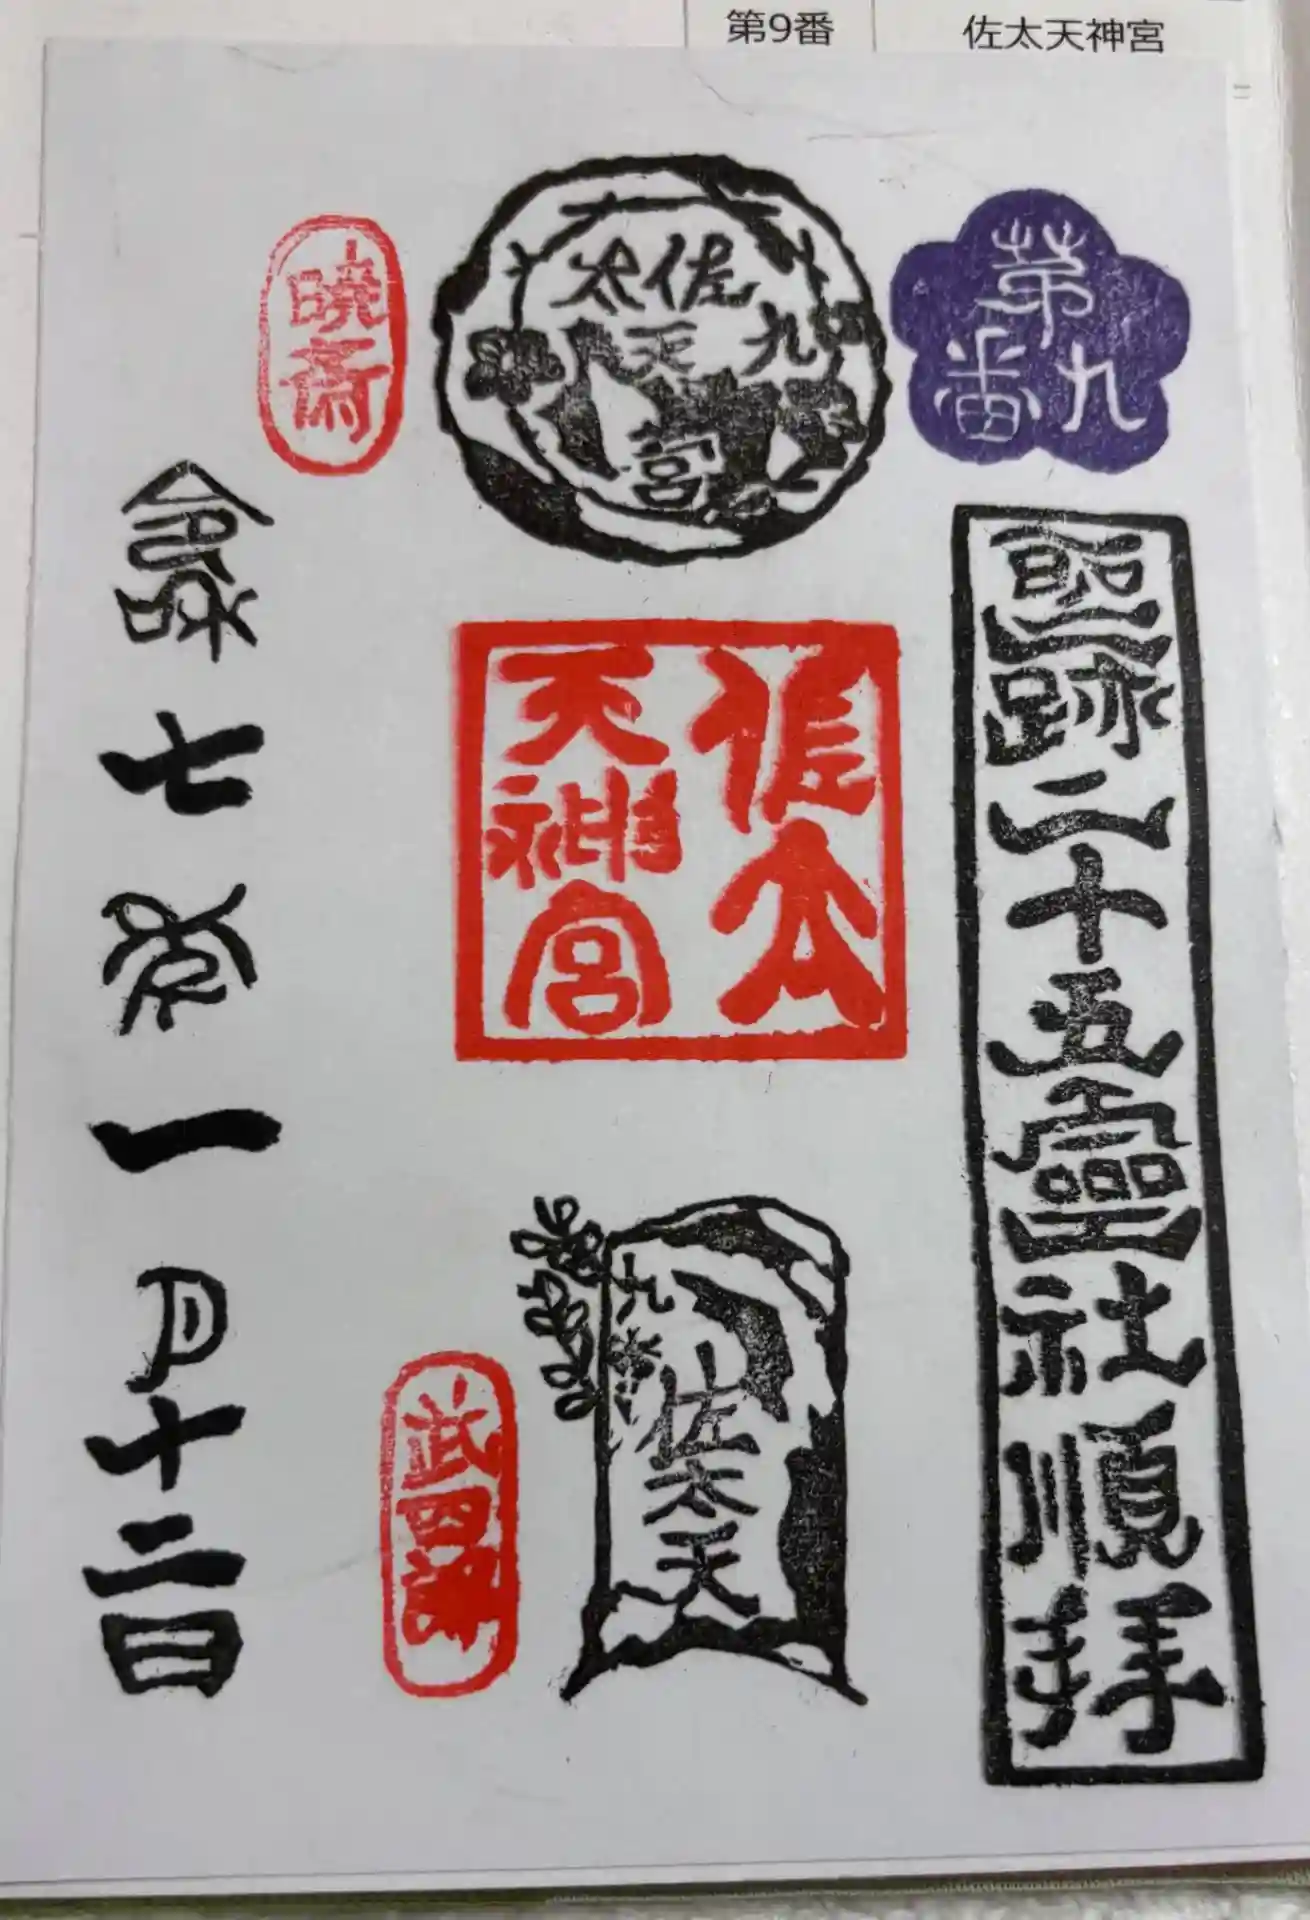 第9番
佐太天神宮
第九番
聖跡二十五霊社順拝
佐太
天
九
宮
佐太
天神宮
九
佐太天
暁斎
武四郎
令和七年一月十二日